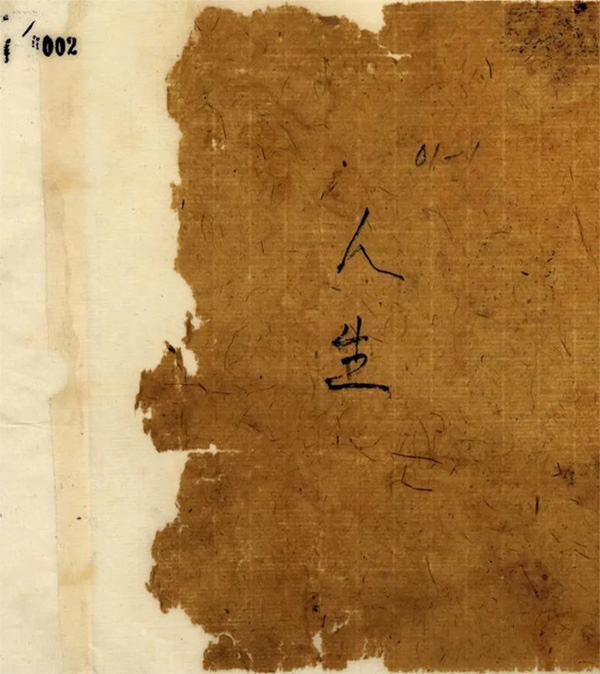 002
01-1
人
生